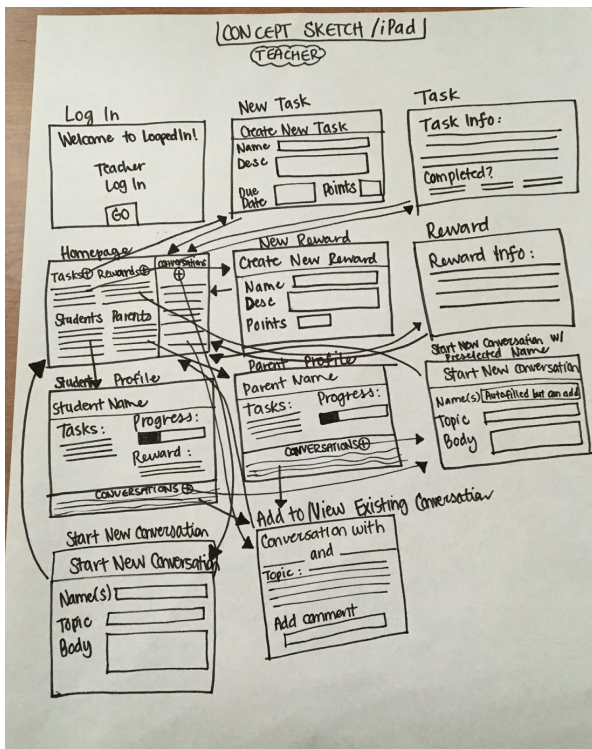 CONCEPT SKETCH / iPad
TEACHER
Log In
Welcome to LoopedIn!
Teacher
Log In
GO
New Task
Create New Task
Name
Desc
Due Date
Points
Task
Task Info:
Completed?
Homepage
Tasks
Rewards
Conversations
Students
Parents
New Reward
Create New Reward
Name
Desc
Points
Reward
Reward Info:
Student Profile
Student Name
Tasks:
Progress:
Reward:
CONVERSATIONS
Parent Profile
Parent Name
Tasks:
Progress:
CONVERSATIONS
Start New Conversation w/
Preselected Name
Start New Conversation
Name(s) Autofilled but can add
Topic
Body
Start New Conversation
Start New Conversation
Name(s)
Topic
Body
Add to/View Existing Conversation
Conversation with
and
Topic:
Add comment